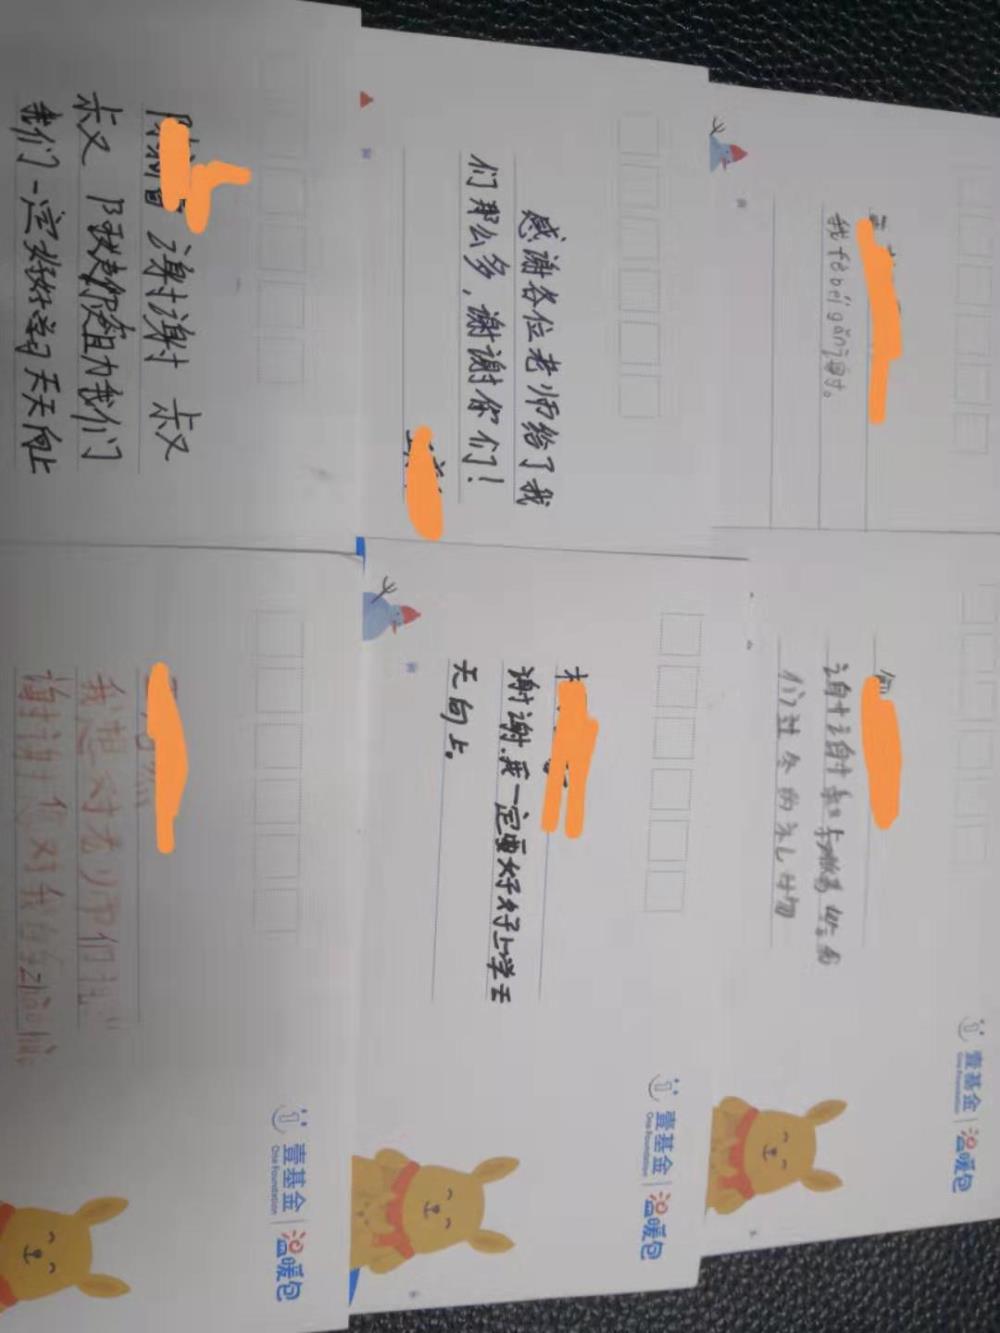 谢谢 叔
叔 阿姨你们帮助我们
我们一定好好学习天天向上
感谢各位老师给了我
们那么多,谢谢你们!
我tèbéigǎn谢。
我想对老师们说
谢谢您对我的zhàogù。
谢谢.我一定要好好上学天
天向上。
谢谢
们过冬的礼物
壹基金
One Foundation
温暖包
壹基金
One Foundation
温暖包
壹基金
One Foundation
温暖包